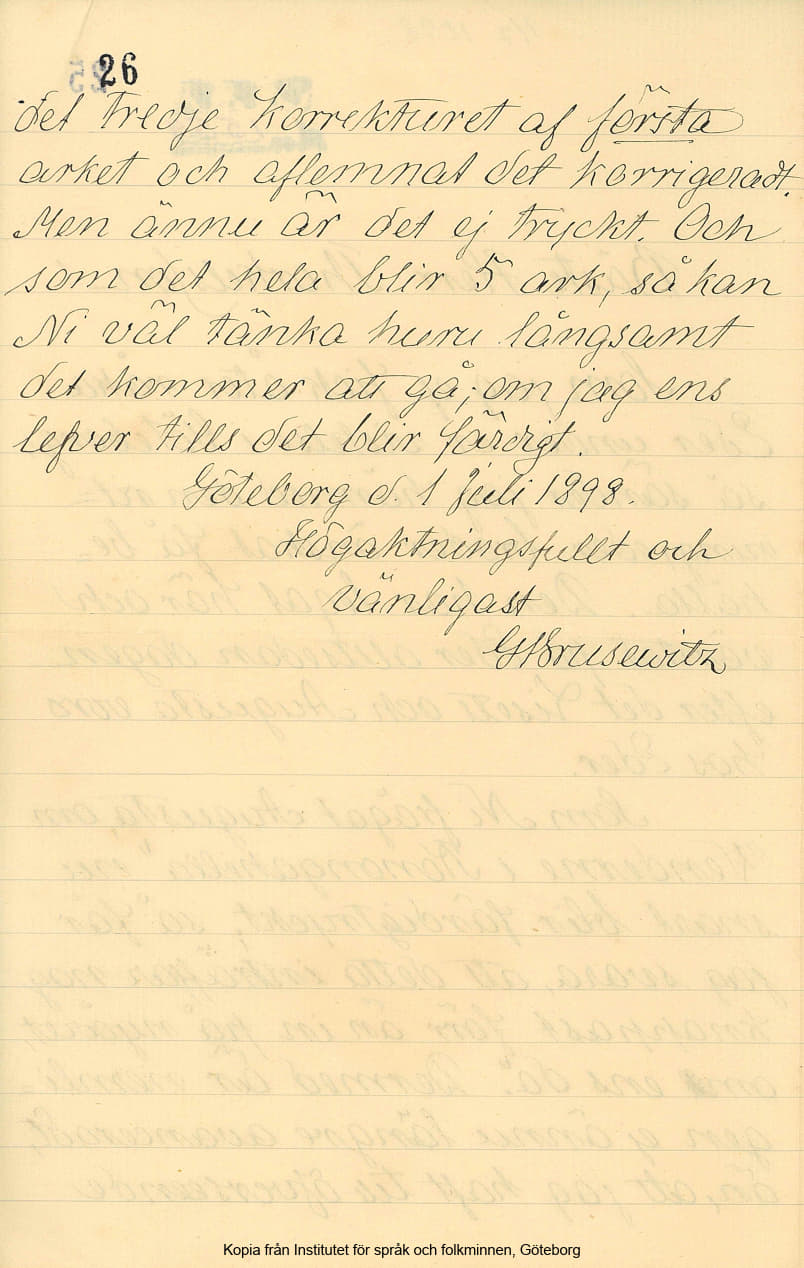 26
det tredje korrekturet af första
arket och aflemnat det korrigeradt.
Men ännu är det ej tryckt. Och
som det hela blir 5 ark, så kan
Ni väl tänka huru långsamt
det kommer att gå; om jag ens
lefver tills det blir färdigt.
Göteborg d. 1 Juli 1898.
Högaktningsfullt och
vänligast
GABrusewitz
Kopia från Institutet för språk och folkminnen, Göteborg